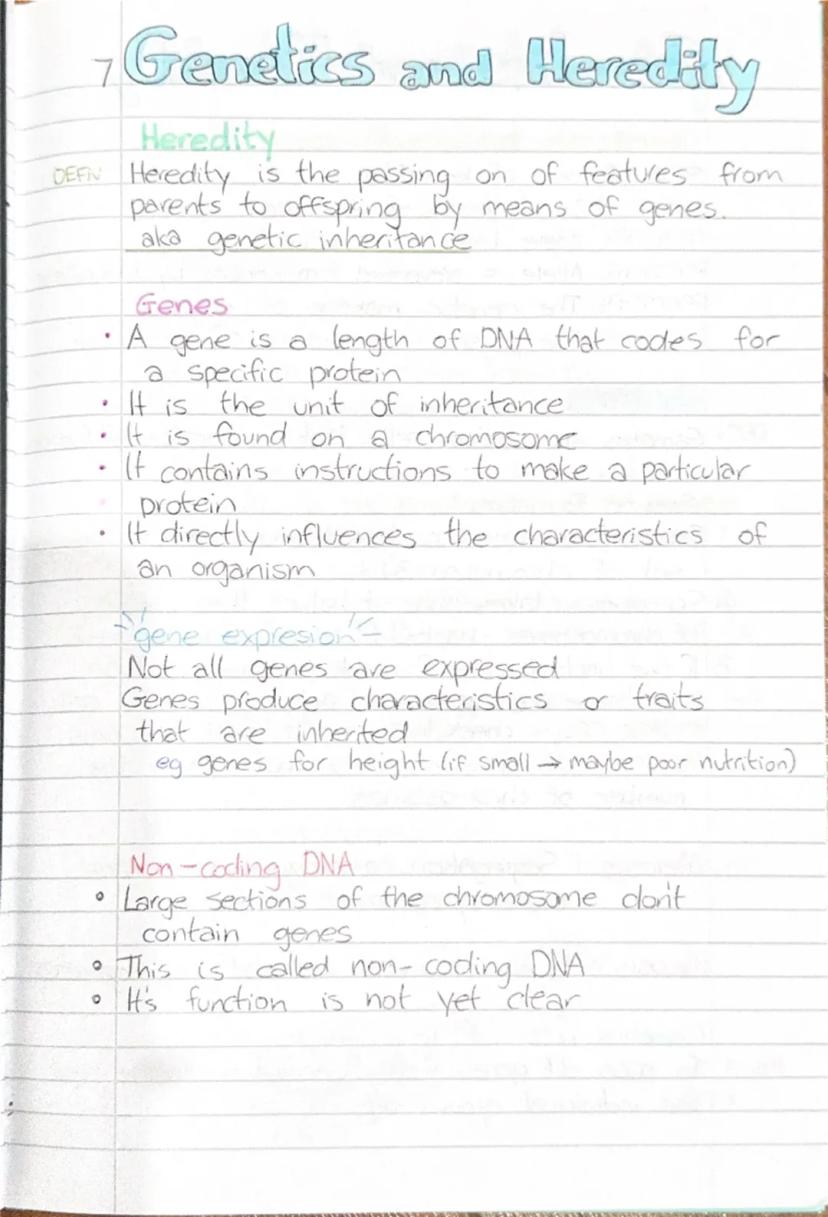 7 Genetics and Heredity
Heredity
DEFN Heredity is the passing on of features from
parents to offspring by means of genes.
aka genetic inheritance
Genes
• A gene is a length of DNA that codes for
a specific protein
• It is the unit of inheritance
• It is found on a chromosome
• It contains instructions to make a particular
protein
• It directly influences the characteristics of
an organism
gene expresion
Not all genes are expressed
Genes produce characteristics or traits
that are inherited
eg genes for height (if small → maybe poor nutrition)
Non-coding DNA
° Large sections of the chromosome don't
contain genes
° This is called non-coding DNA
° It's function is not yet clear